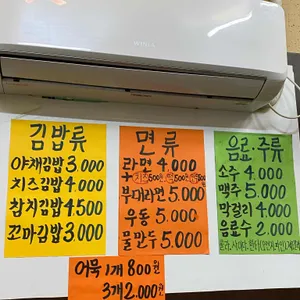 김밥류
야채김밥 3.000
치즈김밥 4.000
참치김밥 4.500
꼬마김밥 3.000
면류
라면 4.000
부대라면 5.000
우동 5.000
물만두 5.000
음료.주류
소주 4.000
맥주 5.000
막걸리 4.000
음료수 2.000
어묵 1개 800원
3개 2.000원